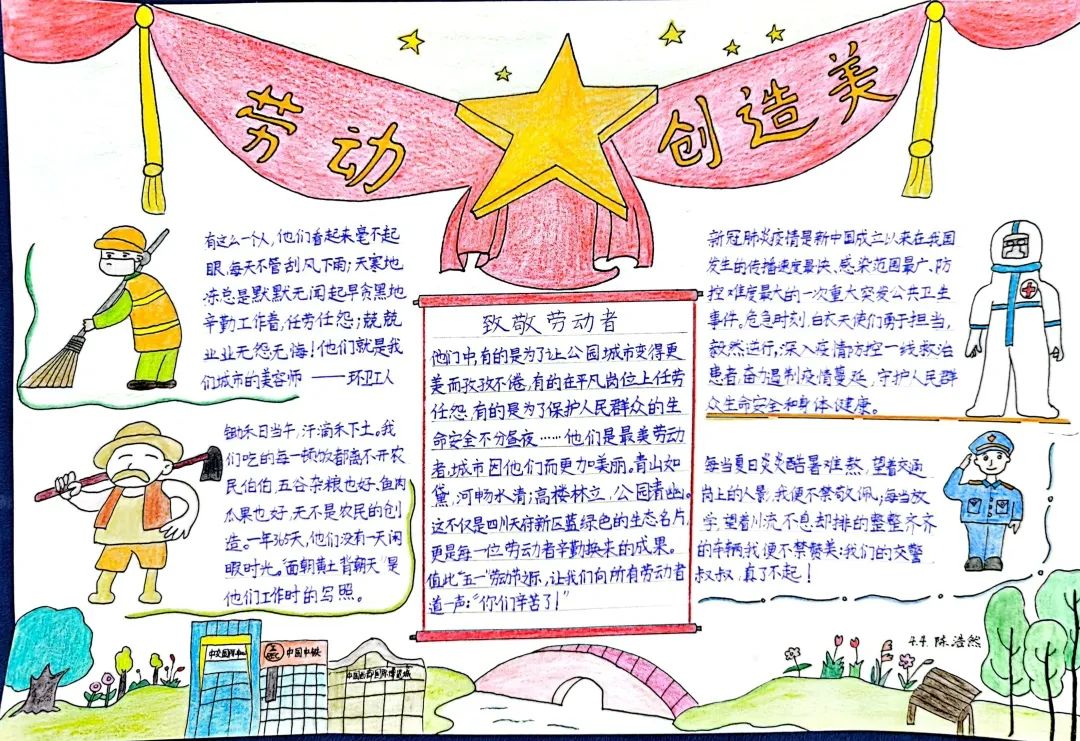 劳动 创造美
有这么一个人,他们看起来毫不起
眼,每天不管刮风下雨;天寒地
冻总是默默无闻起早贪黑地
辛勤工作着,任劳任怨;兢兢
业业无怨无悔!他们就是我
们城市的美容师 ——环卫工人
锄禾日当午,汗滴禾下土。我
们吃的每一顿饭都离不开农
民伯伯,五谷杂粮也好,鱼肉
瓜果也好,无不是农民的创
造。一年365天,他们没有一天闲
暇时光。“面朝黄土背朝天”是
他们工作时的写照。
致敬劳动者
他们中,有的是为了让公园城市变得更
美而孜孜不倦,有的在平凡岗位上任劳
任怨,有的是为了保护人民群众的生
命安全不分昼夜……他们是最美劳动
者,城市因他们而更加美丽。青山如
黛,河畅水清;高楼林立,公园清幽。
这不仅是四川天府新区蓝绿色的生态名片,
更是每一位劳动者辛勤换来的成果。
值此“五一”劳动节之际,让我们向所有劳动者
道一声:“你们辛苦了!”
新冠肺炎疫情是新中国成立以来在我国
发生的传播速度最快、感染范围最广、防
控难度最大的一次重大突发公共卫生
事件。危急时刻,白衣天使们勇于担当,
毅然逆行,深入疫情防控一线救治
患者,奋力遏制疫情蔓延,守护人民群
众生命安全和身体健康。
每当夏日炎炎酷暑难熬,望着交通
岗上的人影,我便不禁敬佩。每当放
学,望着川流不息却排的整整齐齐
的车辆我便不禁赞美:我们的交警
叔叔,真了不起!
4.4 陈浩然
中国中铁